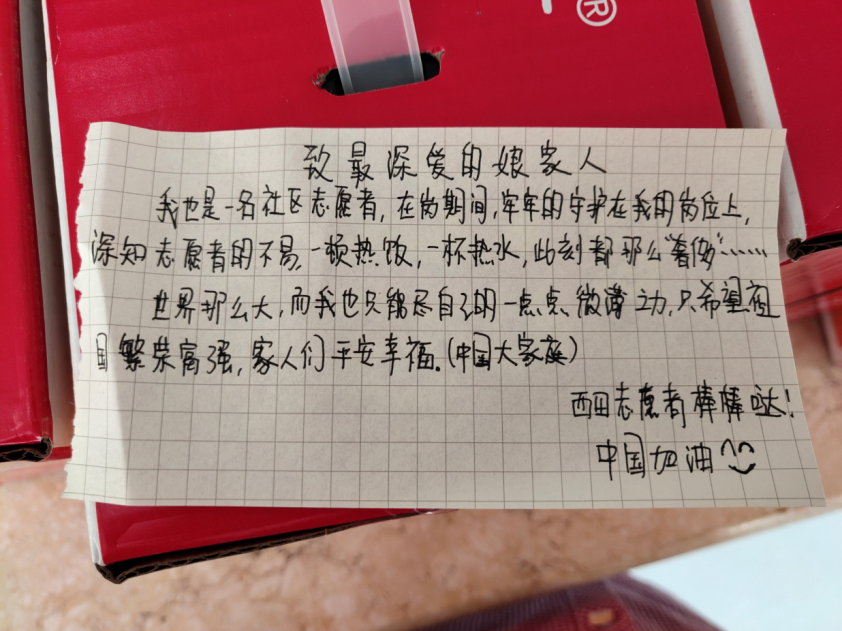 ®
致最深爱的娘家人
我也是一名社区志愿者,在岗期间,牢牢的守护在我的岗位上,
深知志愿者的不易,一顿热饭,一杯热水,此刻都那么“奢侈”……
世界那么大,而我也只能尽自己的一点点微薄之力,只希望祖
国繁荣富强,家人们平安幸福.(中国大家庭)
西田志愿者棒棒哒!
中国加油